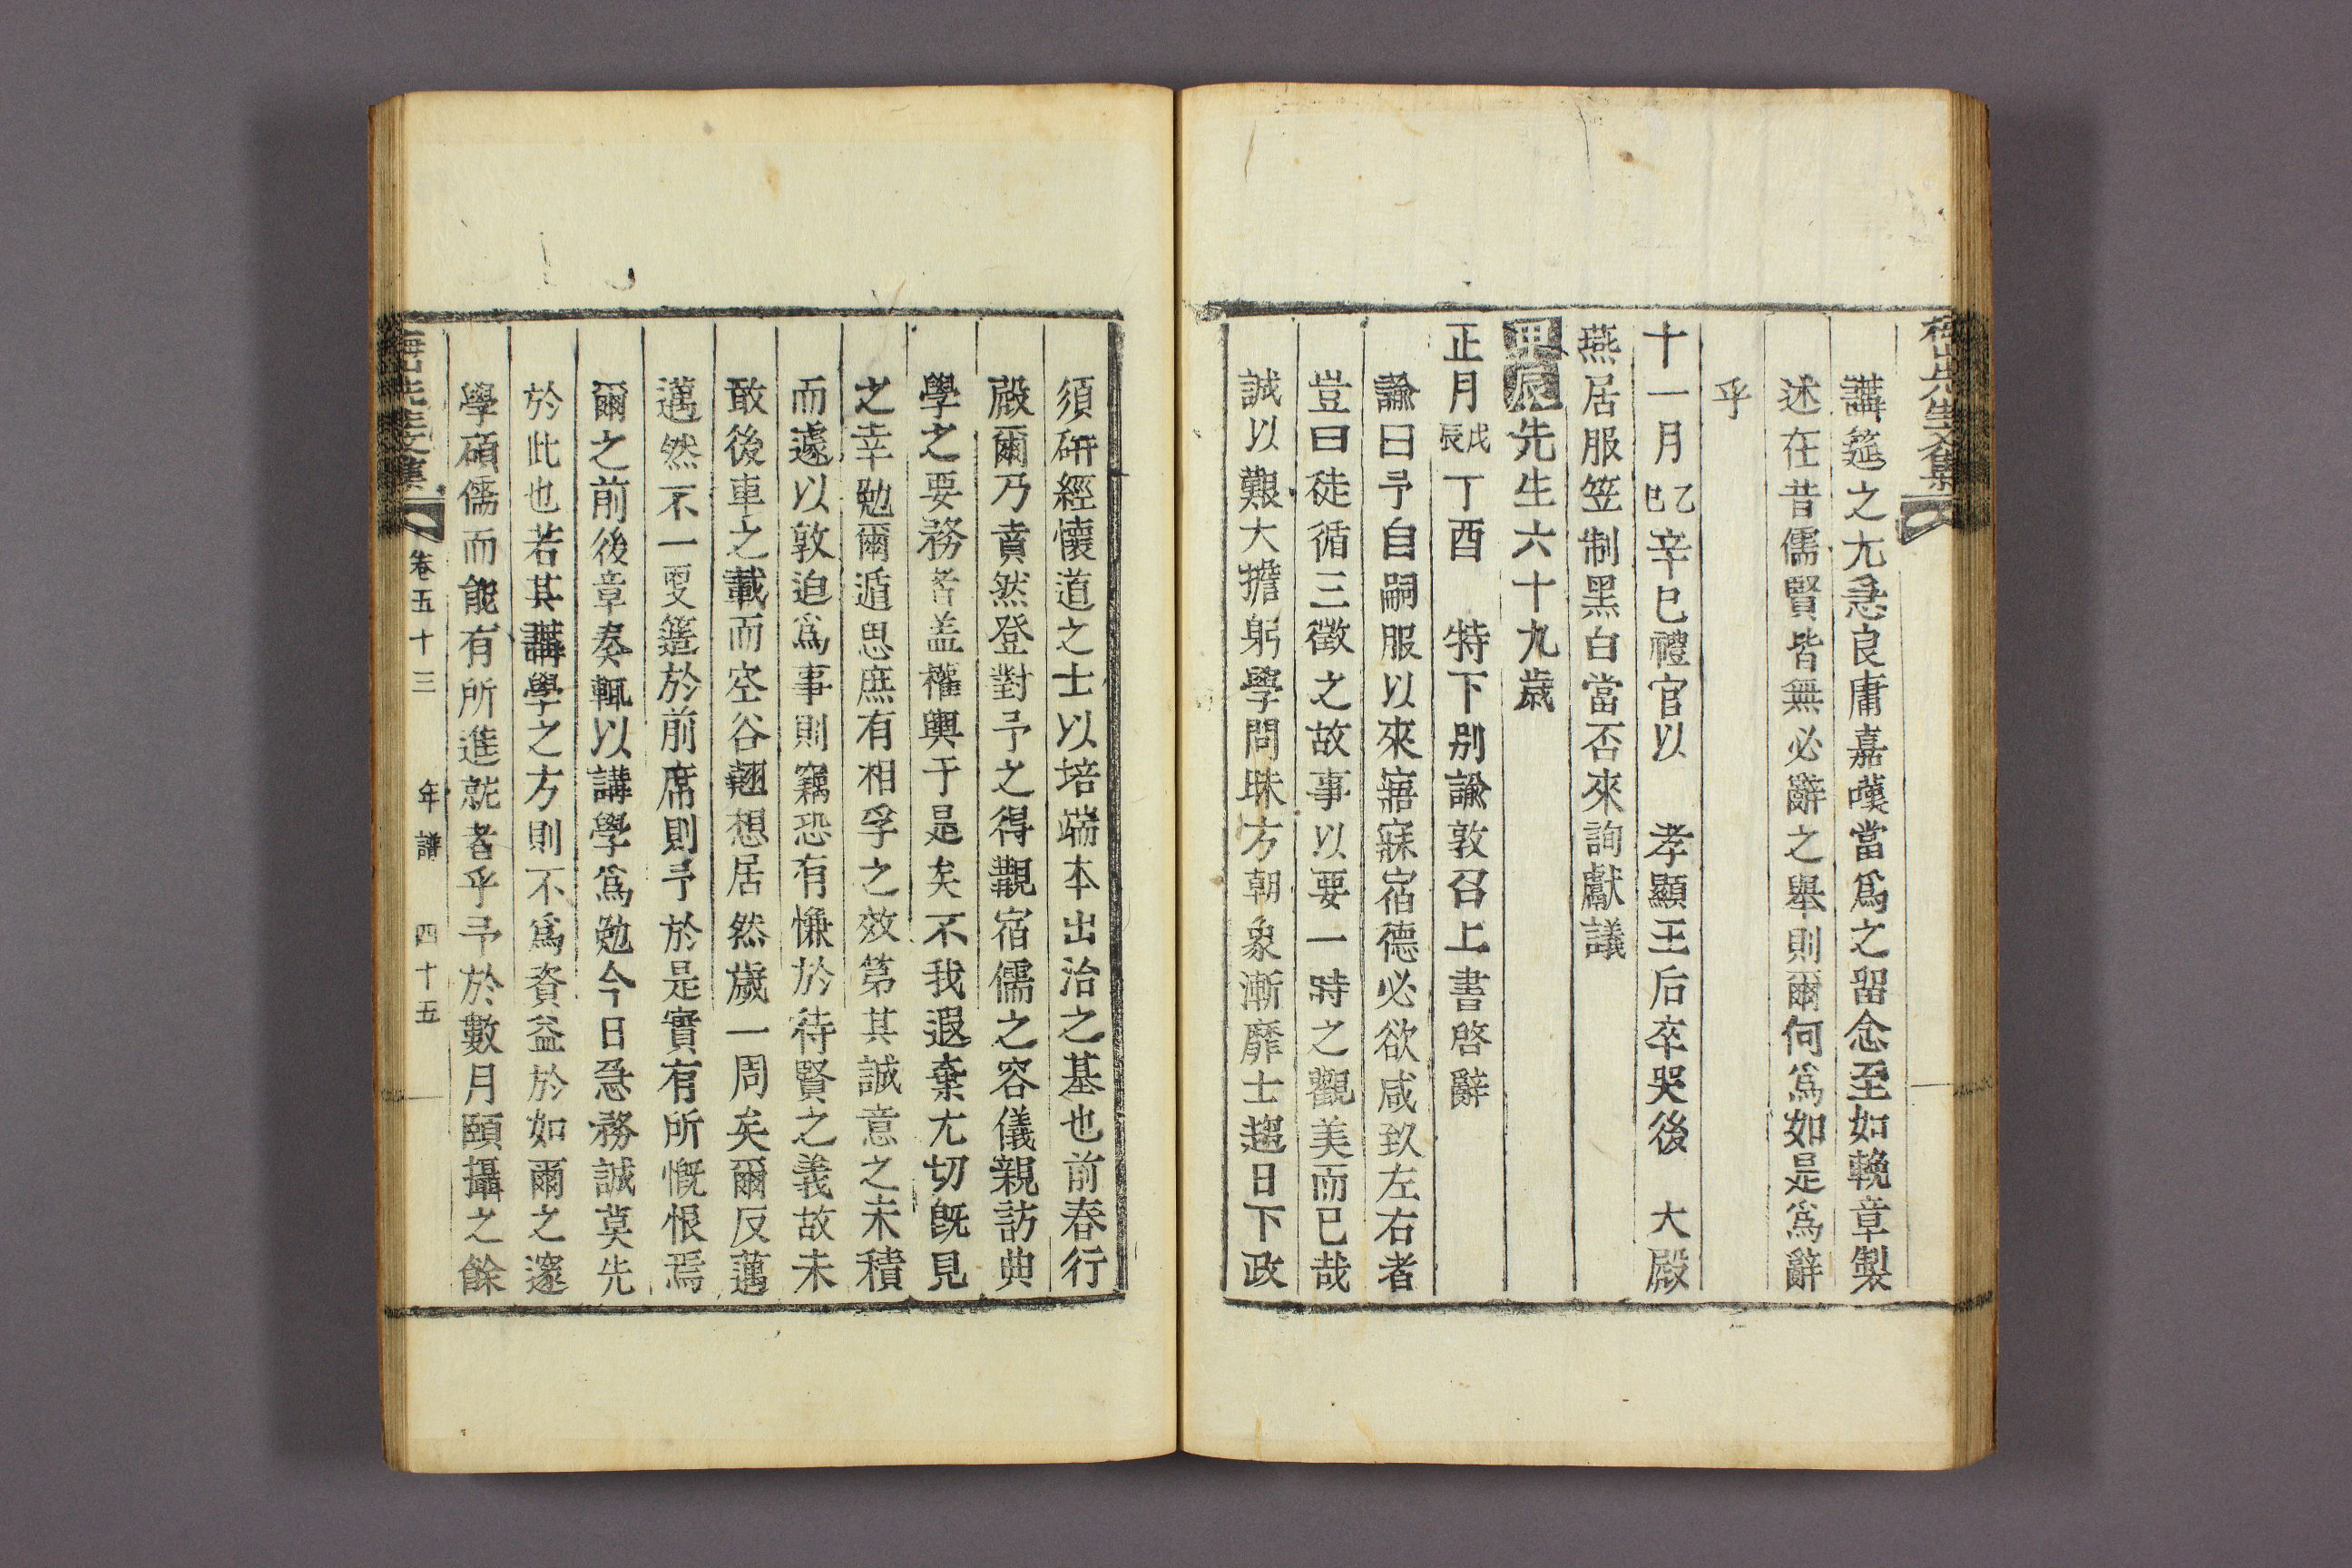 梅山先生文集
講筵之尤急良庸嘉嘆當爲之留念至如輓章製
述在昔儒賢皆無必辭之擧則爾何爲如是爲辭
乎
十一月乙巳辛巳禮官以 孝顯王后卒哭後 大殿
燕居服笠制黑白當否來詢獻議
甲辰先生六十九歲
正月戊辰丁酉 特下別諭敦召上書啓辭
諭曰予自嗣服以來寤寐宿德必欲咸致左右者
豈曰徒循三徵之故事以要一時之觀美而已哉
誠以艱大擔躬學問昧方朝象漸靡士趨日下政
須硏經懷道之士以培端本出治之基也前春行
殿爾乃賁然登對予之得覩宿儒之容儀親訪典
學之要務者盖權輿于是矣不我遐棄尤切旣見
之幸勉爾遁思庶有相孚之效第其誠意之未積
而遽以敦迫爲事則竊恐有慊於待賢之義故未
敢後車之載而空谷翹想居然歲一周矣爾反邁
邁然不一更筵於前席則予於是實有所慨恨焉
爾之前後章奏輒以講學爲勉今日急務誠莫先
於此也若其講學之方則不爲資益於如爾之邃
學碩儒而能有所進就者乎予於數月頤攝之餘
梅山先生文集 卷五十三 年譜 四十五